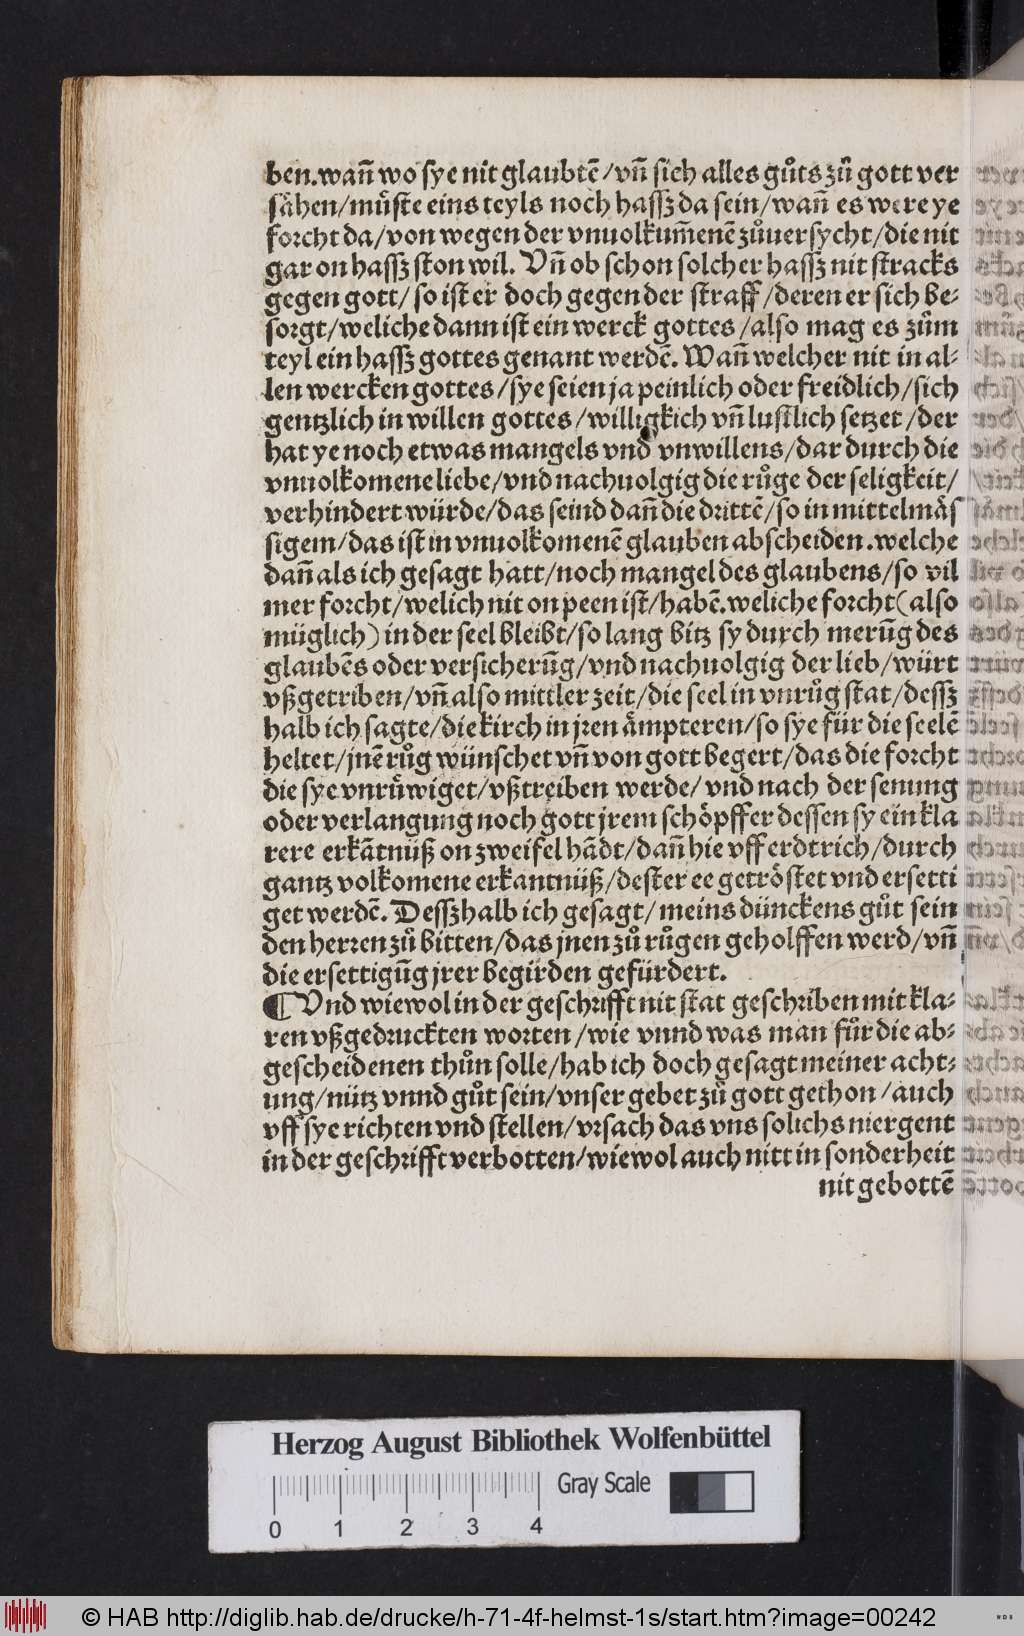 ben. wañ wo sye nit glaubtē/ vñ sich alles gůts zů gott ver
sähen/ müste eins teyls noch hassz da sein/ wañ es were ye
forcht da/ von wegen der vnuolkum̄enē zůuersycht/ die nit
gar on hassz ston wil. Vñ ob schon solcher hassz nit stracks
gegen gott/ so ist er doch gegen der straff/ deren er sich be-
sorgt/ weliche dann ist ein werck gottes/ also mag es zům
teyl ein hassz gottes genant werdē. Wañ welcher nit in al-
len wercken gottes/ sye seien ja peinlich oder freidlich/ sich
gentzlich in willen gottes/ willigkich vñ lustlich setzet/ der
hat ye noch etwas mangels vnd vnwillens/ dar durch die
vnuolkomene liebe/ vnd nachuolgig die růge der seligkeit/
verhindert würde/ das seind dañ die drittē/ so in mittelmäs
sigem/ das ist in vnuolkomenē glauben abscheiden. welche
dañ als ich gesagt hatt/ noch mangel des glaubens/ so vil
mer forcht/ welich nit on peen ist/ habē. weliche forcht (also
müglich) in der seel bleibt/ so lang bitz sy durch merūg des
glaubēs oder versicherūg/ vnd nachuolgig der lieb/ würt
vßgetriben/ vñ also mittler zeit/ die seel in vnrůg stat/ dessz
halb ich sagte/ die kirch in jren ämpteren/ so sye für die seelē
heltet/ jnē růg wünschet vñ von gott begert/ das die forcht
die sye vnrüwiget/ vßtreiben werde/ vnd nach der senung
oder verlangung noch gott jrem schöpffer dessen sy ein kla
rere erkātnüß on zweifel hādt/ dañ hie vff erdtrich/ durch
gantz volkomene erkantnüß/ dester ee getröstet vnd ersetti
get werdē. Dessz halb ich gesagt/ meins dünckens gůt sein
den herren zů bitten/ das jnen zů růgen geholffen werd/ vñ
die ersettigūg jrer begirden gefürdert.
¶ Vnd wiewol in der geschrifft nit stat geschriben mit kla-
ren vßgedruckten worten/ wie vnnd was man für die ab-
gescheidenen thůn solle/ hab ich doch gesagt meiner acht-
ung/ nütz vnnd gůt sein/ vnser gebet zů gott gethon/ auch
vff sye richten vnd stellen/ vrsach das vns solichs niergent
in der geschrifft verbotten/ wiewol auch nitt in sonderheit
nit gebottē
Herzog August Bibliothek Wolfenbüttel
Gray Scale
0 1 2 3 4
© HAB http://diglib.hab.de/drucke/h-71-4f-helmst-1s/start.htm?image=00242